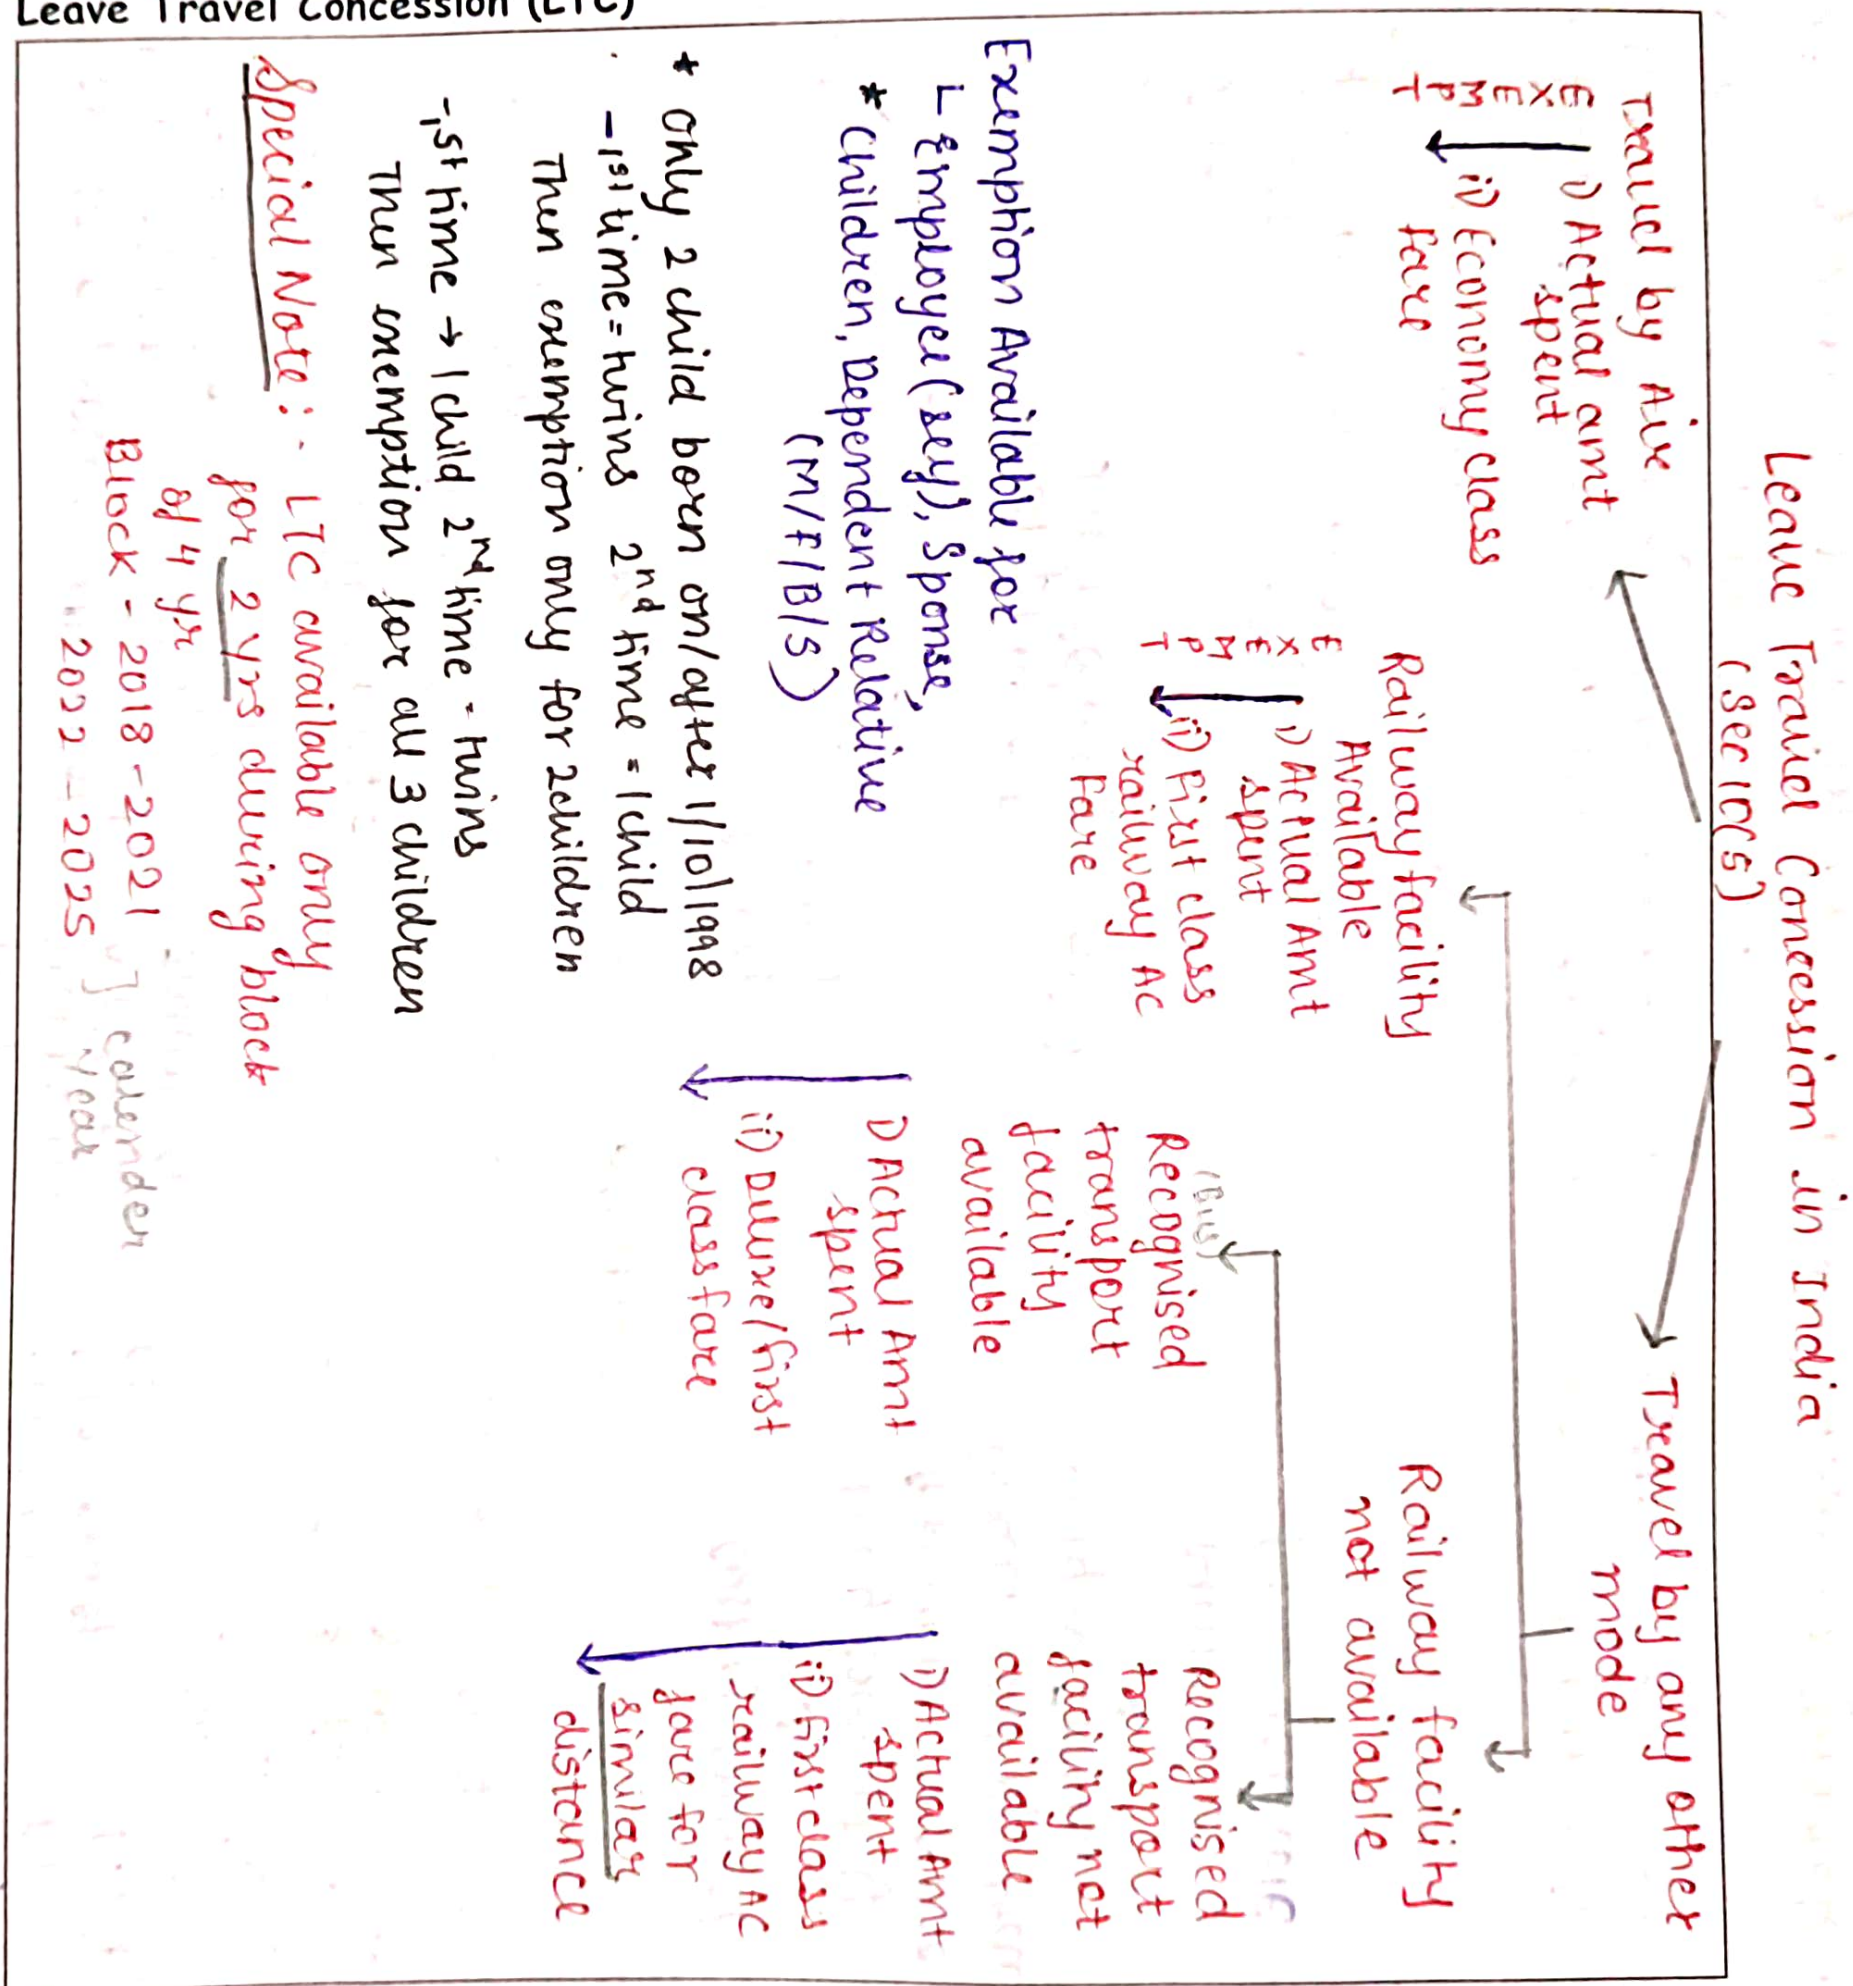 Leave Travel Concession (LTC)
Leave Travel Concession in India
(Sec 10(5)
Travel by Air
EXEMPT
i) Actual amt
spent
ii) Economy class
fare
Travel by any other
mode
Railway facility
Available
EXEMPT
i) Actual Amt
spent
ii) First class
railway AC
Fare
Railway facility
not available
(Bus)
Recognised
transport
facility
available
i) Actual Amt
spent
ii) Deluxe/first
class fare
Recognised
transport
facility not
available
i) Actual Amt
spent
ii) First class
railway AC
fare for
similar
distance
Exemption Available for
Employee (self), Spouse,
* Children, Dependent Relative
(M/F/B/S)
* only 2 child born on/after 1/10/1998
- 1st time = twins 2nd time = 1 child
Then exemption only for 2 children
- 1st time → 1 child 2nd time = twins
Then exemption for all 3 children
Special Note :- LTC available only
for 2 yrs during block
of 4 yr
Block - 2018-2021
2022-2025
] calender
year